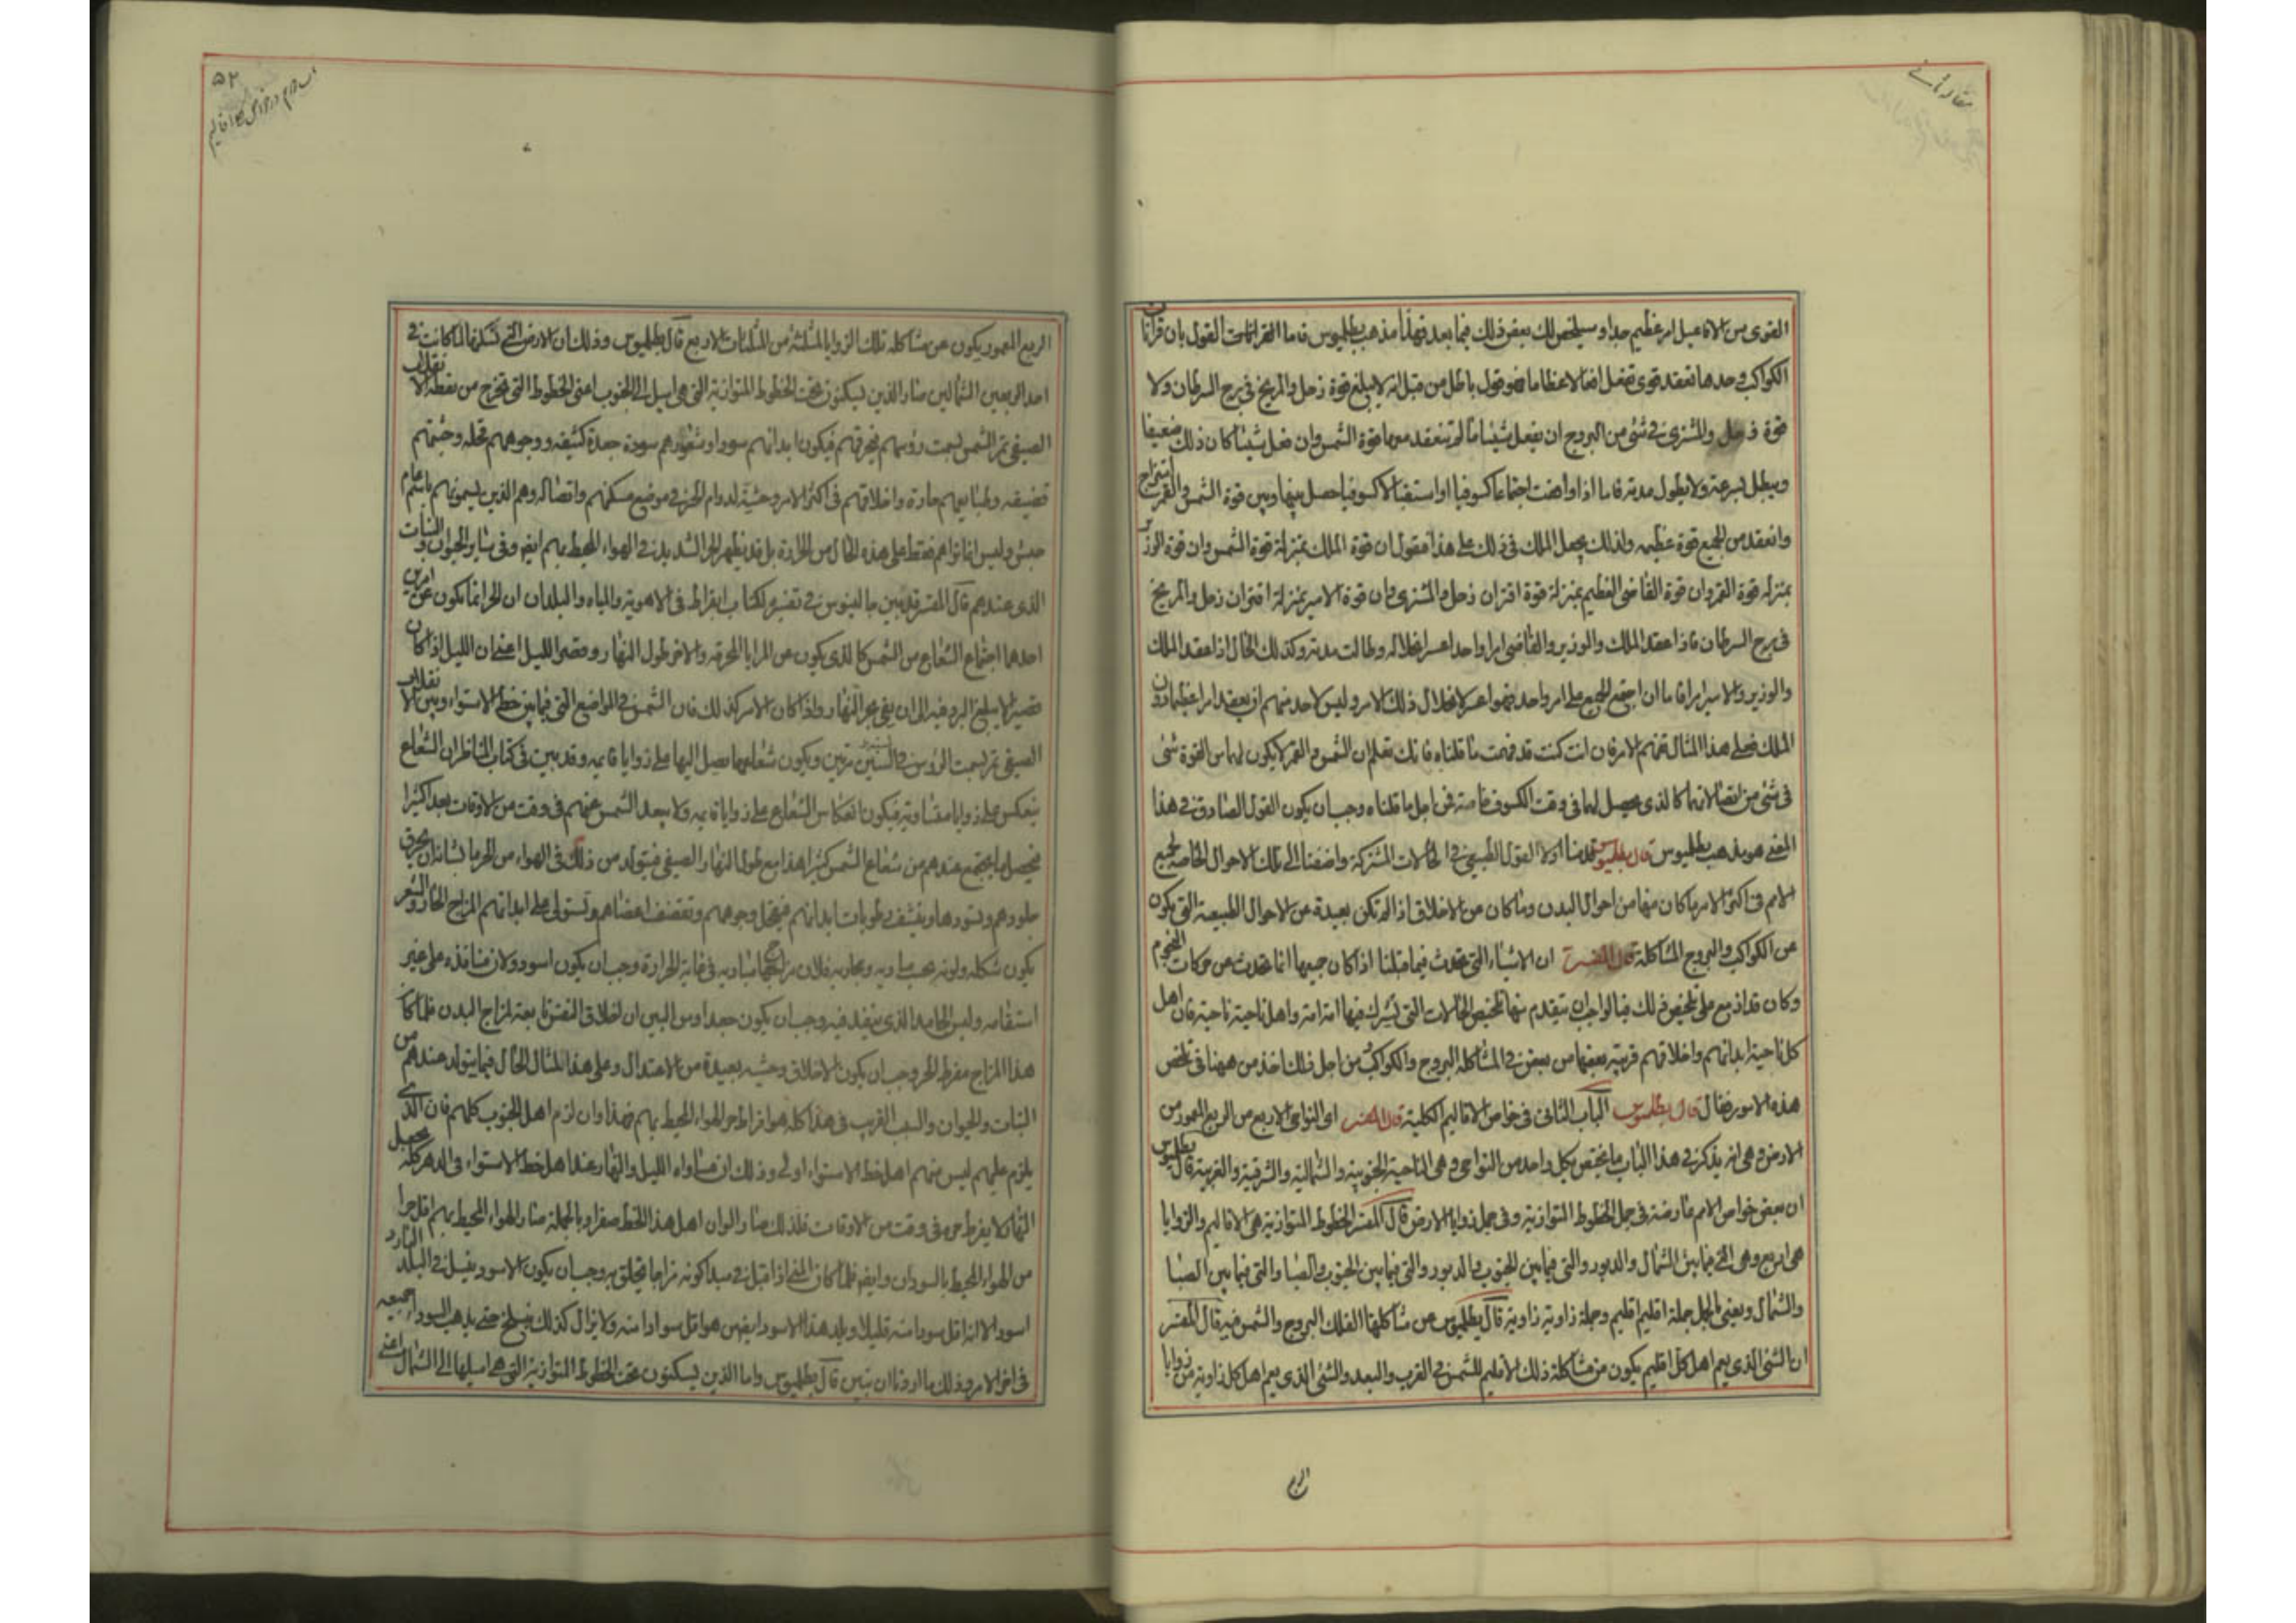 مقاله ثانی
القوى من الافاعيل امر عظيم جدا وسيلخص لك بعض ذلك فيما بعد فهذا مذهب بطلميوس فاما القول بان قرآنات
الكواكب وحدها تعقد قوى تفعل افعالا عظاما فهو قول باطل من قبل انه لا يبلغ قوة زحل والمريخ فى برج السرطان ولا
قوة زحل والمشترى فى شئ من البروج ان يفعل شيئا ما لم تنعقد معهما قوة الشمس وان فعل شيئا كان ذلك ضعيفا
ويبطل بسرعة ولا يطول مدته فاما اذا وافقت اجتماعا كسوفيا او استقبالا كسوفيا حصل بينها وبين قوة الشمس والقمر امتزاج
وانعقد من الجميع قوة عظيمه ولذلك يجعل الملك فى ذلك على هذا فنقول ان قوة الملك بمنزلة قوة الشمس وان قوة الوزير
بمنزله قوة القمر وان قوة القاضى العظيم بمنزلة قوة اقتران زحل والمشترى وان قوة الامير بمنزلة اقتران زحل والمريخ
فى برج السرطان فاذا عقد الملك والوزير والقاضى امرا واحدا عسر انحلاله وطالت مدته وكذلك الحال اذا عقد الملك
والوزير والامير امرا فاما ان اجتمع الجميع على امر واحد فهو اعسر لانحلال ذلك الامر وليس لاحد منهم ان يعقد امرا عظيما دون
الملك فعلى هذا المثال تفهم الامر فان انت كنت قد فهمت ما قلناه فانك تعلم ان الشمس والقمر لا يكون لهما من القوة شئ
فى شئ من اتصالاتهما كالذى يحصل لهما فى وقت الكسوف خاصة فمن اجل ما قلناه وجب ان يكون القول الصادق فى هذا
المعنى هو مذهب بطلميوس قال بطلميوس قدمنا اولا القول الطبيعى فى الحالات المشتركة واضفنا الى تلك الاحوال الخاصه لجميع
الامم فى اكثر الامر ما كان منها من احوال البدن وما كان من الاخلاق اذ لم تكن بعيدة من الاحوال الطبيعية التى يكون
من الكواكب والبروج المشاكلة قال المفسر ان الاشياء التى تحدث فيما قبلنا اذا كان جميعها انما تحدث من حركات النجوم
وكان قد ازمع على تلخيص ذلك فبالواجب ان يتقدم منها تلخيص الحالات التى يشترك فيها امة امة واهل ناحية ناحية فان اهل
كل ناحية ابدانهم واخلاقهم قريبة بعضها من بعض فى المشاكلة البروج والكواكب من اجل ذلك اخذ من ههنا فى تلخص
هذه الامور فقال قال بطلميوس الباب الثانى فى خواص الاقاليم الكلية قال المفسر اى النواحى الاربع من الربع المعمور من
الارض وهى انه يذكر فى هذا الباب ما يختص بكل واحد من النواحى وهى الناحية الجنوبية والشمالية والشرقية والغربية قال بطلميوس
ان بعض خواص الامم عارضة فى جمل الخطوط المتوازية وفى جمل زوايا الارض قال المفسر الخطوط المتوازية هى الاقاليم والزوايا
هى اربع وهى التى فيما بين الشمال والدبور والتى فيما بين الجنوب والدبور والتى فيما بين الجنوب والصبا والتى فيما بين الصبا
والشمال ويعنى بالجمل جملة اقليم اقليم وجملة زاوية زاوية قال بطلميوس من مشاكلتها لفلك البروج والشمس فيه قال المفسر
ان الشئ الذى يعم اهل كل اقليم يكون من مشاكلة ذلك الاقليم للشمس فى القرب والبعد والشئ الذى يعم اهل كل زاوية من زوايا
الربع
۵۲
الربع المعمور يكون من مشاكلة تلك الزوايا المثلثة من المثلثات الاربع قال بطلميوس وذلك ان الارض التى نسكنها لما كانت فى
احد الربعين الشماليين صار الذين يسكنون تحت الخطوط المتوازية التى هى اميل الى الجنوب اعنى الخطوط التى تخرج من نقطة الانقلاب
الصيفى تمر الشمس بسمت رؤسهم فتحرقهم فيكون ابدانهم سودا وشعورهم سودة جعدة كثيفه ووجوههم قحله وجثتهم
قضيفه وطبايعهم حارة واخلاقهم فى اكثر الامر وحشية لدوام الحر فى موضع مسكنهم واتصاله وهم الذين نسميهم باسم عام
حبش وليس انما تراهم فقط على هذه الحال من الحرارة بل قد يظهر الحر الشديد فى الهواء المحيط بهم ايضا وفى سائر الحيوان والنبات
الذى عندهم قال المفسر قد بين جالينوس فى تفسير لكتاب ابقراط فى الاهوية والمياه والبلدان ان الحر انما يكون عن امرين
احدهما اجتماع الشعاع من الشمس كالذى يكون عن المرايا المحرقه والاخر طول النهار وقصر الليل اعنى ان الليل اذا كان
قصيرا لا يبلغ البرد فيه الى ان يفى بحر النهار واذا كان الامر كذلك فان الشمس فى المواضع التى فيما بين خط الاستواء وبين الانقلاب
الصيفى تمر بسمت الرؤس فى السنة مرتين ويكون شعاعها يصل اليها على زوايا قايمه وقد بين فى كتاب المناظر ان الشعاع
ينعكس على زوايا متساوية فيكون انعكاس الشعاع على زوايا قايمه ولا يبعد الشمس عنهم فى وقت من الاوقات بعدا كثيرا
فيحصل ما يجتمع عندهم من شعاع الشمس كثيرا هذا مع طول النهار الصيفى فيتولد من ذلك فى الهواء من الحر ما شانه ان يحرق
جلودهم ويسودها وينشف رطوبات ابدانهم فيقحل وجوههم وتقضف اعضاهم وتستولى على ابدانهم المزاج الحار والشعر
يكون شكله ولونه بحسب مادته ومجاريه فلان مزاجها مادته فى غاية الحرارة وجب ان يكون اسود ولان منافذه على غير
استقامه وليس الجلد الذى ينفذ فيه وجب ان يكون جعدا ومن البين ان اخلاق النفس تابعة لمزاج البدن فلما كان
هذا المزاج مفرط الحر وجب ان يكون الاخلاق وحشيه بعيدة من الاعتدال وعلى هذا المثال الحال فيما يتولد عندهم من
النبات والحيوان والسبب القريب فى هذا كله هو افراط حر الهواء المحيط بهم فهذا وان لزم اهل الجنوب كلهم فان الذى
يلزم عليهم ليس منهم اهل خط الاستواء اولى وذلك ان مساواه الليل والنهار عند اهل خط الاستواء فى الدهر كله يجعل
النهار لا يفرط حره فى وقت من الاوقات فلذلك صار الوان اهل هذا الخط صفرا وبالجملة صار الهواء المحيط بهم اقل حرا
من الهواء المحيط بالسودان وايضا فلما كان المنى اذا قبل فى مبدا كونه مزاجا تخلق به وجب ان يكون الاسود ينسل فى البلد البارد
اسود الا انه اقل سودا منه قليلا ويلد هذا الاسود ايضا من هو اقل سوادا منه ولا يزال كذلك ينسلخ حتى يذهب السواد جميعه
فى اخر الامر وذلك ما اردنا ان نبين قال بطلميوس واما الذين يسكنون تحت الخطوط المتوازية التى هى اميلها الى الشمال اعنى